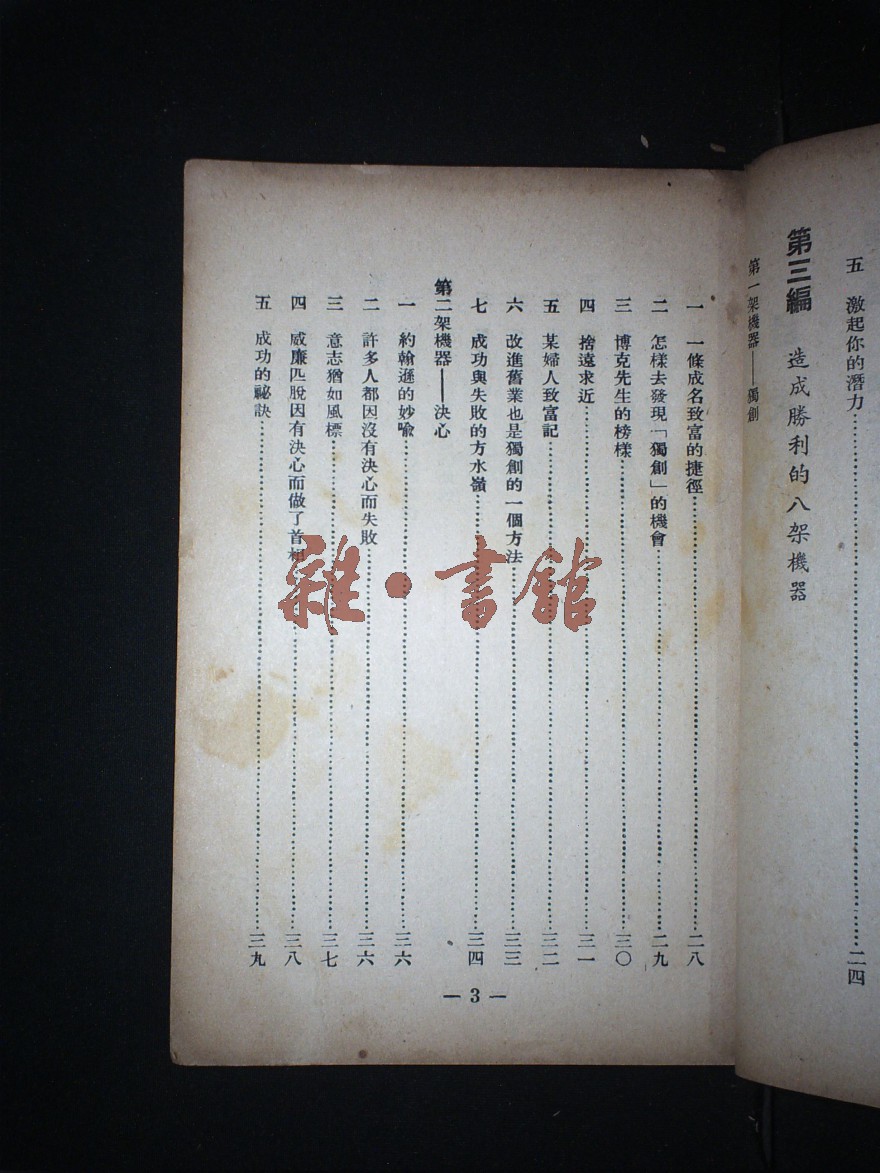 五　激起你的潛力……二四
第三編　造成勝利的八架機器
第一架機器——獨創
一　一條成名致富的捷徑……二八
二　怎樣去發現「獨創」的機會……二九
三　博克先生的榜樣……三〇
四　捨遠求近……三一
五　某婦人致富記……三二
六　改進舊業也是獨創的一個方法……三三
七　成功與失敗的方水嶺……三四
第二架機器——決心
一　約翰遜的妙喻……三六
二　許多人都因沒有決心而失敗……三六
三　意志猶如風標……三七
四　威廉匹脫因有決心而做了首相……三八
五　成功的祕訣……三九
— 3 —
雜·書館